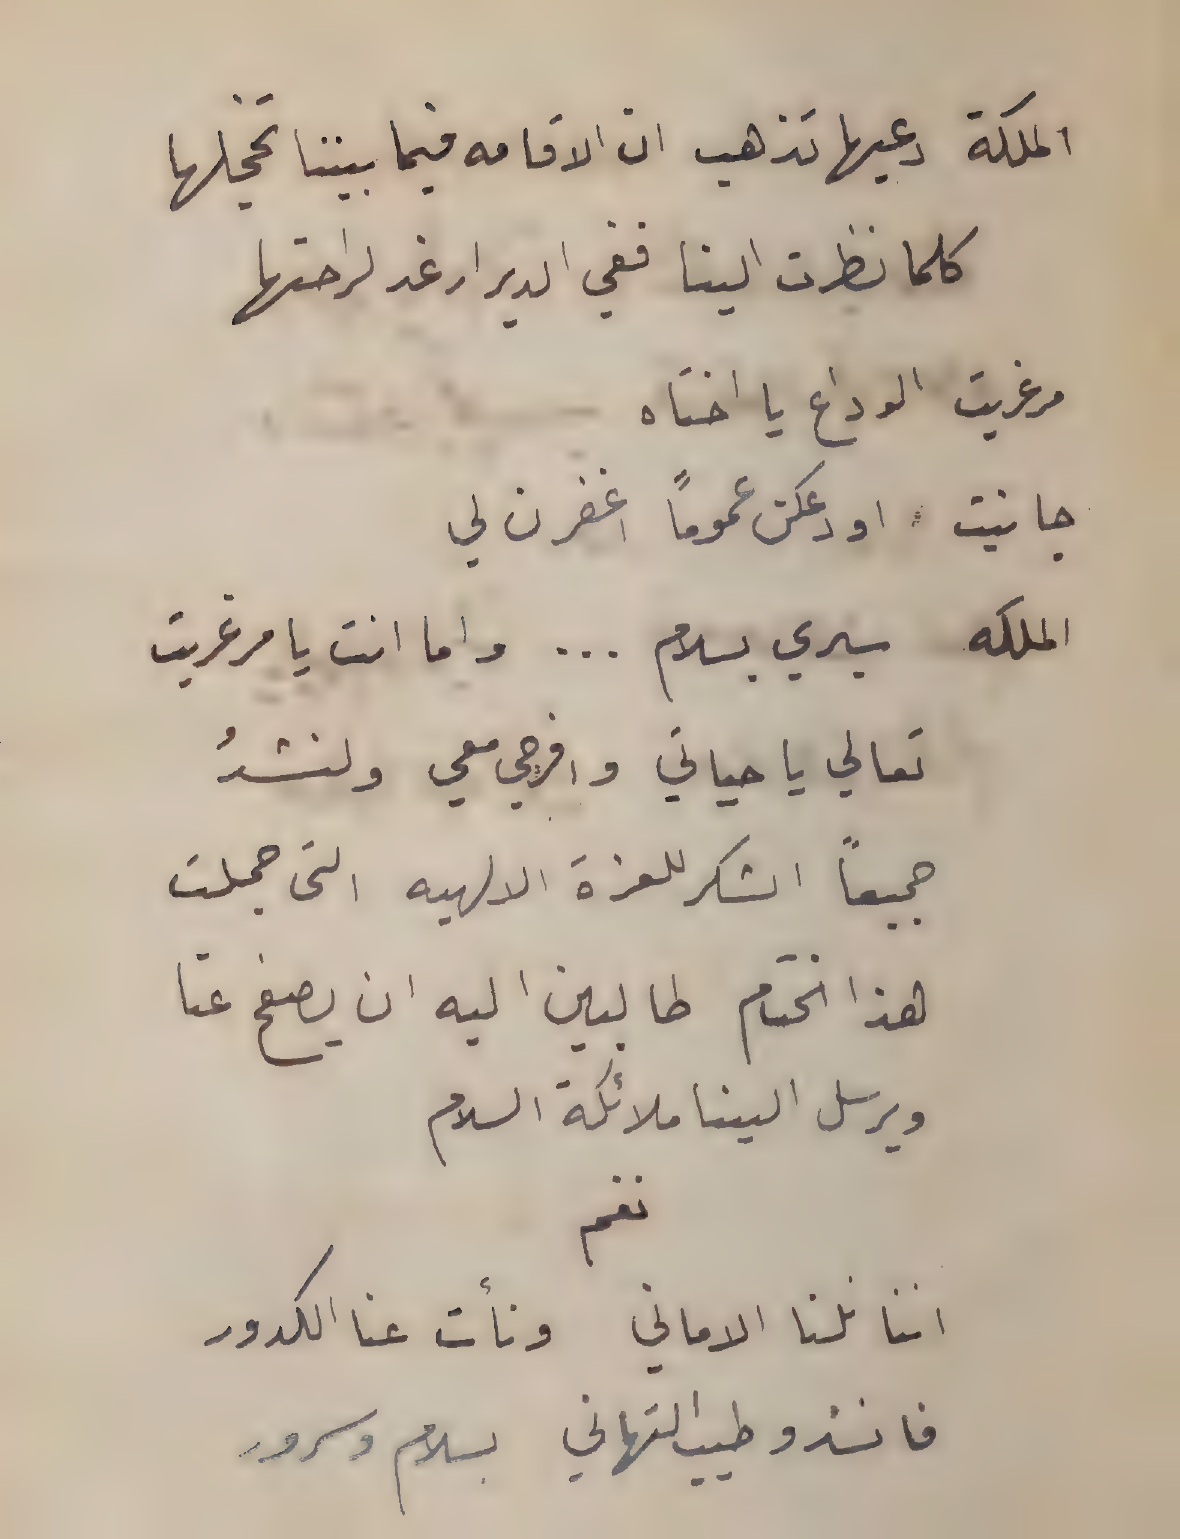 الملكة دعيها تذهب ان الاقامه فيما بيننا تخجلها
كلما نظرت الينا ففي الدير ارغد لراحتها
مرغريت الوداع يا اختاه
جانيت اودعكن عموماً اغفرن لي
الملكه سيري بسلام ... واما انت يا مرغريت
تعالي يا حياتي وافرحي معي ولنشدُ
جميعاً الشكر للعزة الالهيه التي جملت
هذا الختام طالبين اليه ان يصفح عنا
ويرسل الينا ملائكة السلام
نغم
اننا نلنا الاماني ونأت عنا الكدور
فانشدو طيب التهاني بسلام وسرور